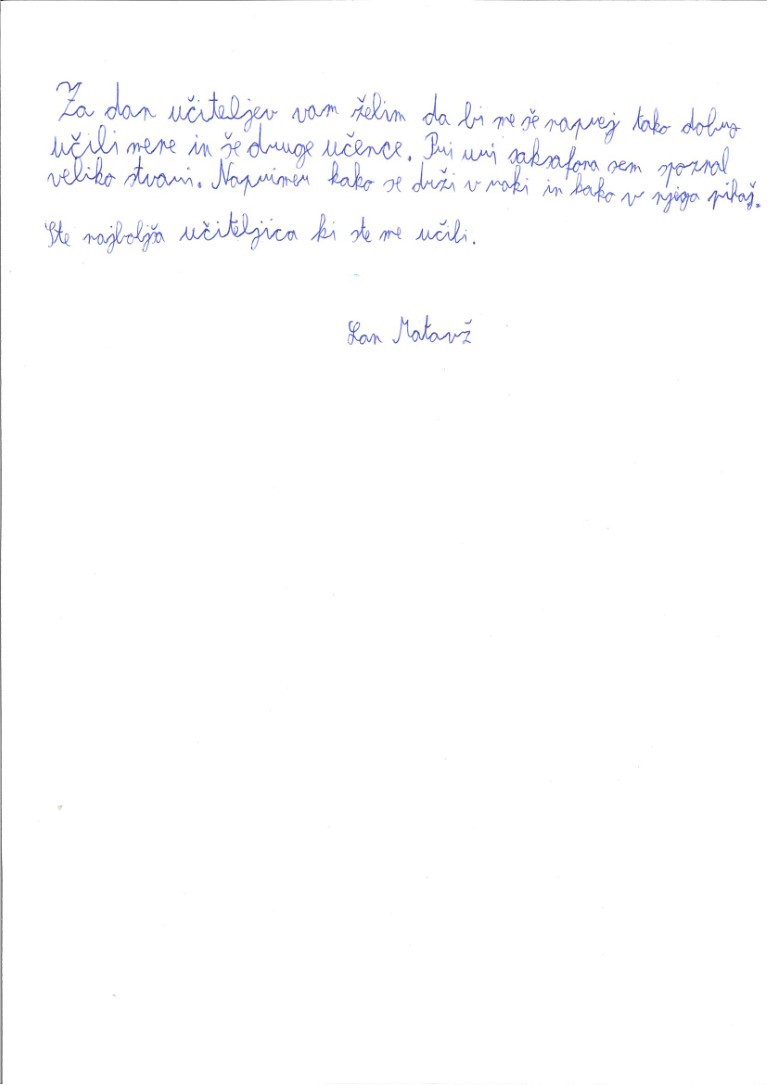 Za dan učiteljev vam želim da bi me še naprej tako dobro
učili mene in še druge učence. Pri uri saksafona sem spoznal
veliko stvari. Naprimer kako se drži v roki in kako v njega pihaš.
Ste najboljša učiteljica ki ste me učili.
Lan Matavž